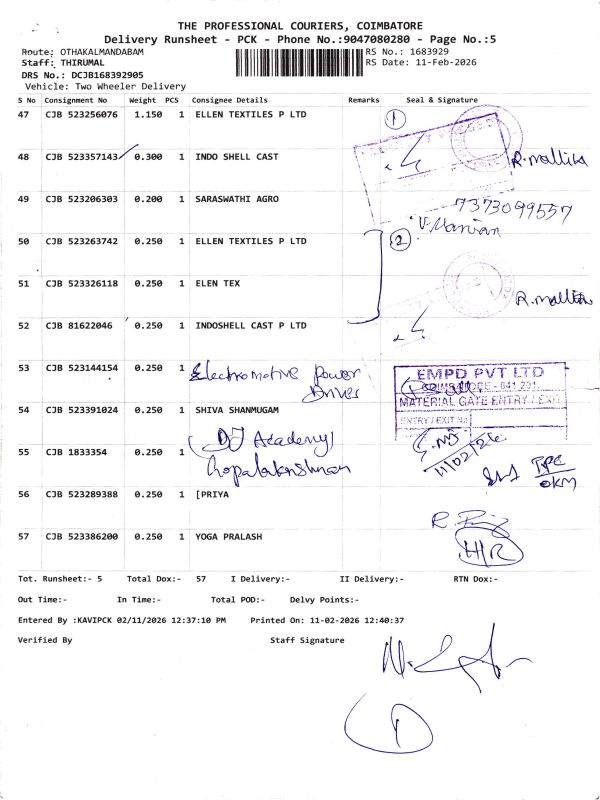 THE PROFESSIONAL COURIERS, COIMBATORE
Delivery Runsheet - PCK - Phone No.:9047080280 - Page No.:5
Route: OTHAKALMANDABAM RS No.: 1683929
Staff: THIRUMAL RS Date: 11-Feb-2026
DRS No.: DCJB168392905
Vehicle: Two Wheeler Delivery
S No Consignment No Weight PCS Consignee Details Remarks Seal & Signature
47 CJB 523256076 1.150 1 ELLEN TEXTILES P LTD 1
48 CJB 523357143 0.300 1 INDO SHELL CAST R.mallika
49 CJB 523206303 0.200 1 SARASWATHI AGRO 7373099557
V.Manian
50 CJB 523263742 0.250 1 ELLEN TEXTILES P LTD 2
51 CJB 523326118 0.250 1 ELEN TEX R.mallika
52 CJB 81622046 0.250 1 INDOSHELL CAST P LTD
53 CJB 523144154 0.250 1 Electromotive power
Drives
EMPD PVT LTD
COIMBATORE - 641 201.
MATERIAL GATE ENTRY / EXIT
ENTRY / EXIT No
54 CJB 523391024 0.250 1 SHIVA SHANMUGAM
11/02/26
55 CJB 1833354 0.250 1 DJ Academy
Gopalakrishnan
56 CJB 523289388 0.250 1 [PRIYA
57 CJB 523386200 0.250 1 YOGA PRALASH H/R
Tot. Runsheet:- 5 Total Dox:- 57 I Delivery:- II Delivery:- RTN Dox:-
Out Time:- In Time:- Total POD:- Delvy Points:-
Entered By :KAVIPCK 02/11/2026 12:37:10 PM Printed On: 11-02-2026 12:40:37
Verified By Staff Signature